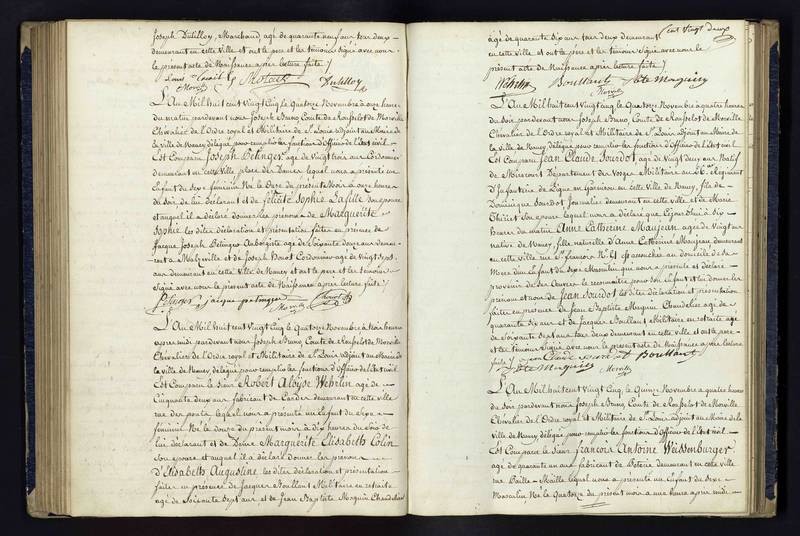 Joseph Dutilloy, Marchand, agé de quarante neuf ans tous deux
demeurant en cette ville et ont le père et les témoins signé avec nous
le présent acte de Naissance après lecture faite /
Dutilloy
L'An Mil huit cent Vingt Cinq le Quatorze Novembre à onze heures
du matin pardevant nous Joseph Bruno, Comte de Rousselot de Morville
Chevalier de l'Ordre royal et Militaire de St Louis adjoint au Maire de
la ville de Nancy, délégué pour remplir les fonctions d'Officier de l'état civil
Est Comparu Joseph Betinger agé de Vingt trois ans Cordonnier
demeurant en cette Ville, place des Dames lequel nous a présenté un
Enfant du Sexe féminin Né le Onze du présent Mois à onze heures
du soir, de lui déclarant et de félicité Sophie Lafille son épouse
et auquel il a déclaré donner les prénoms de Margueritte
Sophie les dites déclaration et présentation faites en présence de
Jacque Joseph Betinger Aubergiste agé de Soixante douze ans demeu
-rant à Malzeville et de Joseph Houot Cordonnier agé de Vingt Sept
ans demeurant en cette ville de Nancy et ont le père et les témoins
Signé avec nous le présent acte de Naissance après lecture faite /
Morville
L'An Mil huit cent Vingt Cinq le Quatorze Novembre à trois heures
après midi pardevant nous Joseph Bruno, Comte de Rousselot de Morville
Chevalier de l'Ordre royal et Militaire de St Louis adjoint au Maire de
la ville de Nancy, délégué pour remplir les fonctions d'Officier de l'état civil
Est Comparu le Sieur Robert Aloyse Wehrlin agé de
Cinquante deux ans fabricant de Cardes demeurant en cette ville
rue des ponts lequel nous a présenté un Enfant du Sexe
féminin Né le Douze du présent mois à dix heures du soir de
lui déclarant et de Dame Margueritte Elisabeth Colin
Son épouse et auquel il a déclaré donner les prénoms
d'Elisabeth Augustine les dites déclaration et présentation
faites en présence de Jacques Boullant Militaire en retraite
agé de Soixante Sept ans et de Jean Baptiste Mesquin Chandelier
Cent Vingt deux
agé de quarante dix ans tous deux demeurant
en cette ville et ont le père et les témoins Signé avec nous le
présent acte de Naissance après lecture faite /
Wehrlin Boullant
Morville
L'An Mil huit cent Vingt Cinq le Quatorze Novembre à quatre heures
du soir pardevant nous Joseph Bruno, Comte de Rousselot de Morville
Chevalier de l'Ordre royal et Militaire de St Louis adjoint au Maire de
la ville de Nancy, délégué pour remplir les fonctions d'Officier de l'état civil
Est Comparu Jean Claude Sourdot agé de Vingt deux ans Natif
de Mirecourt Département des Vosges Militaire au Régiment
d'Infanterie de Ligne en Garnison en cette Ville de Nancy, fils de
Dominique Sourdot Journalier demeurant en cette ville et de Marie
son épouse lequel nous a déclaré que cejourd'hui à dix
heures du matin Anne Catherine Maujean agée de Vingt ans
native de Nancy, fille naturelle d'Anne Catherine Maujean demeurant
en cette ville rue St françois est accouchée au domicile de sa
Mère d'un Enfant du Sexe Masculin que nous a présenté et déclaré
provenir de ses Œuvres le reconnaître pour son Enfant et lui donner les
prénom et nom de Jean Sourdot les dites déclaration et présentation
faites en présence de Jean Baptiste Mesquin Chandelier agé de
quarante dix ans et de Jacques Boullant Militaire en retraite agé
de Soixante Sept ans tous deux demeurant en cette ville et ont le père
et les témoins Signé avec nous le présent acte de Naissance après lecture
faite / Boullant
Morville
L'An Mil huit cent Vingt Cinq le Quinze Novembre à quatre heures
du soir pardevant nous Joseph Bruno, Comte de Rousselot de Morville
Chevalier de l'Ordre royal et Militaire de St Louis adjoint au Maire de la
Ville de Nancy délégué pour remplir les fonctions d'Officier de l'état civil
Est Comparu le Sieur francois Antoine Weissenburger
agé de quarante un ans fabricant de Poterie demeurant en cette ville
rue Paille-Maille lequel nous a présenté un Enfant du Sexe
Masculin Né le Quatorze du présent mois à une heure après midi